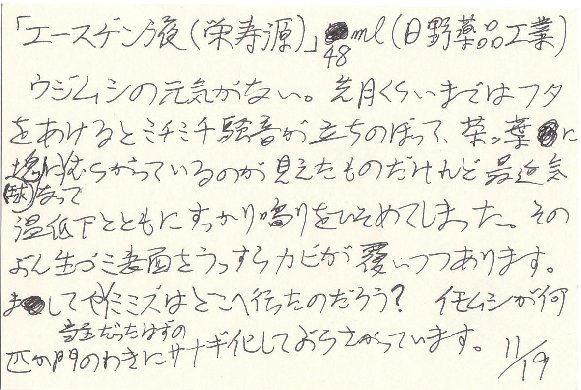 「エースゲン液(栄寿源)」48ml(日野薬品工業)
ウジムシの元気がない。先月くらいまではフタ
をあけるとミチミチ騒音が立ちのぼって、菜ッ葉に
塊(球)になってむらがっているのが見えたものだけれど最近気
温低下とともにすっかり鳴りをひそめてしまった。その
ぶん生ゴミ表面をうっすらカビが覆いつつあります。
ましてやミミズはどこへ行ったのだろう? イモムシが何
匹か門のわきにサナギ化しておらさがっています。 11/19